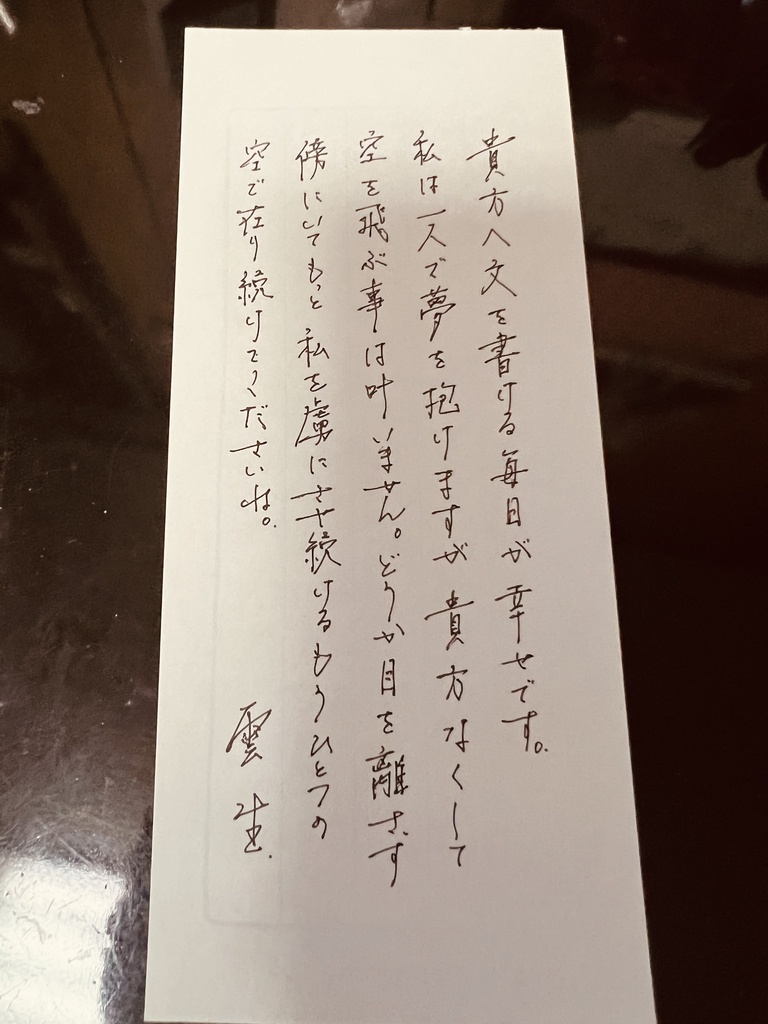 貴方へ文を書ける毎日が幸せです。
私は一人で夢を抱けますが貴方なくして
空を飛ぶ事は叶いません。どうか目を離さず
傍にいてもっと私を虜にさせ続けるもうひとつの
空で在り続けてくださいね。
雲生.